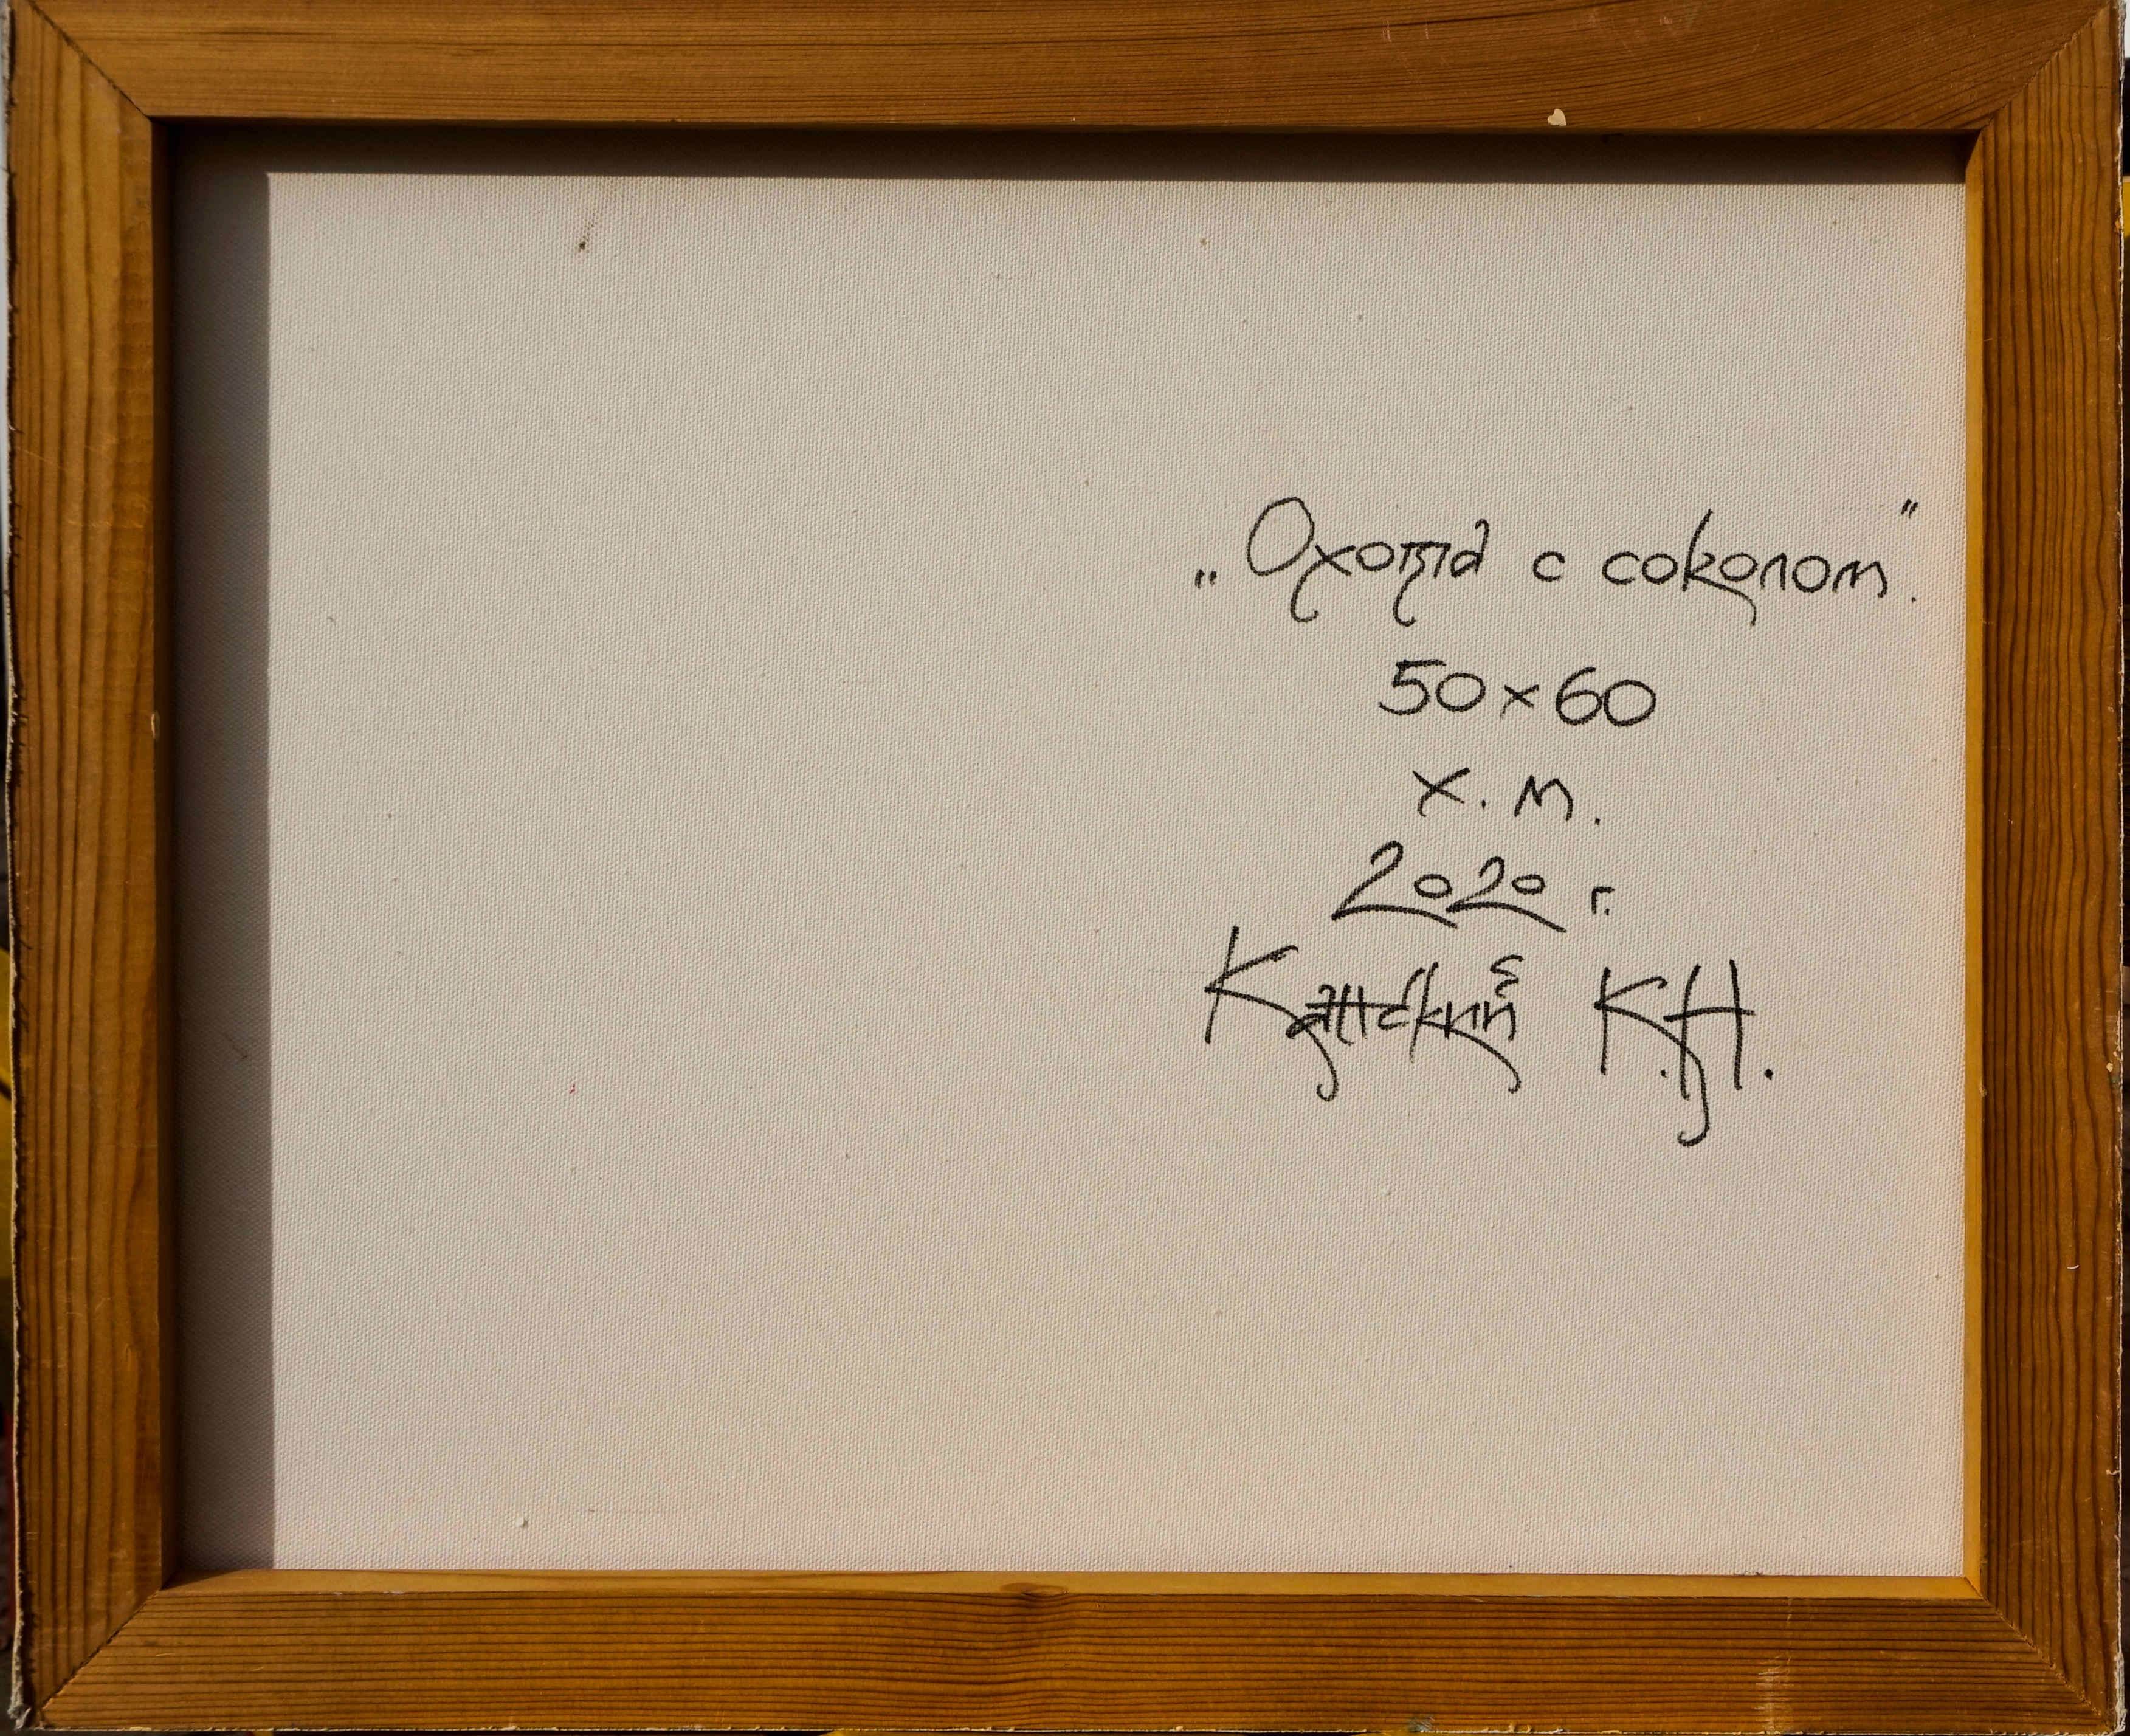 „Охота с соколом".
50×60
х. м.
2020 г.
К.Н.